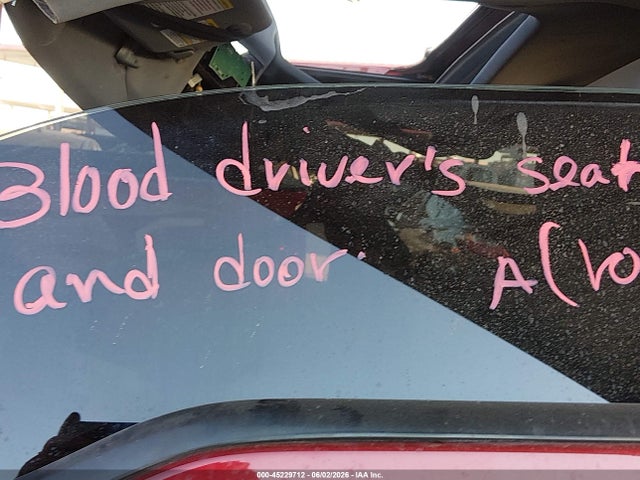 Blood driver's seat
and door. A(ro
000-45229712 - 06/02/2026 - IAA Inc.